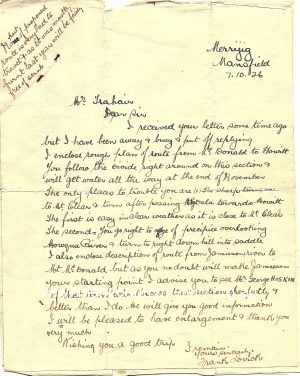 Merrijig
Mansfield
7.10.26
Mr Trahair
Dear Sir
I received your letter some time ago
but I have been away & busy & put off replying
I enclose rough plan of route from Mt McDonald to Howitt
You follow the Divide right around on this section &
will get water all the way at the end of November
The only places to trouble you are
to Mt Clear & turn after passing towards Howitt
The first is easy in clear weather as it is close to Mt Clear
The second you go right to of precipice overlooking
River & turn to right down hill into saddle
I also enclose description of route from Jamieson to
Mt McDonald but as you no doubt will make Jamieson
your starting point I advise you to see Mr George Hoskin
of that town who knows that section
better than I do. He will give you good information
I will be pleased to have enlargement & thank you
very much
Wishing you a good trip
I remain
Yours sincerely
Frank Lovick